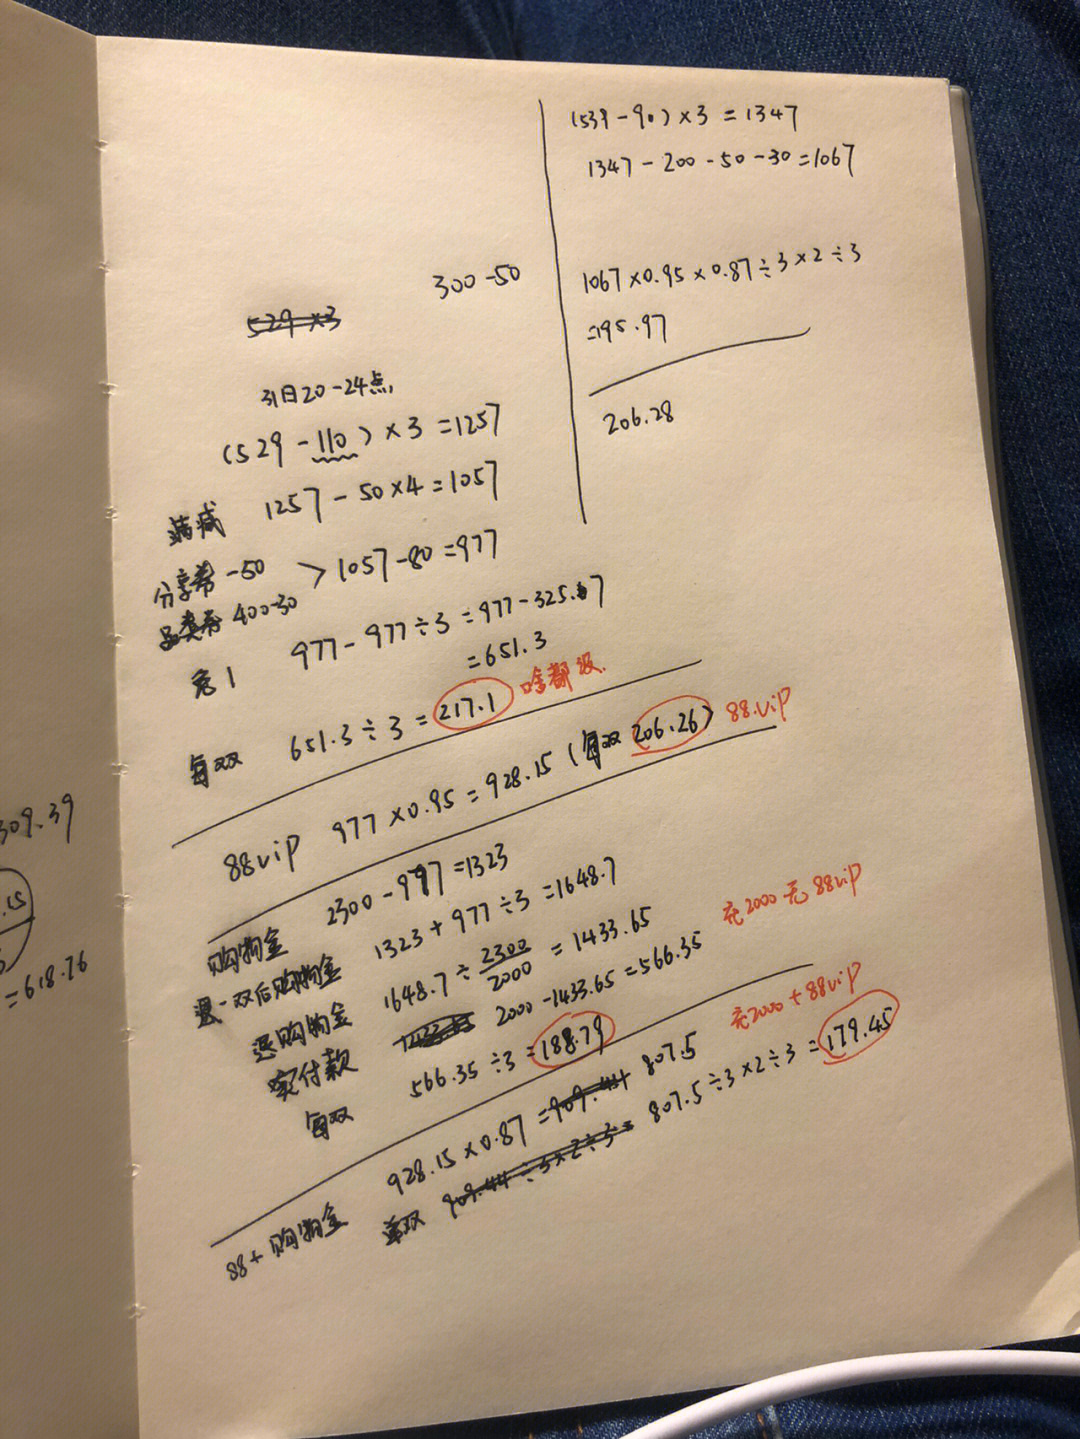 309.39
.15
=618.76
300-50
529×3
31日20-24点
(529-110)×3=1257
满减 1257-50×4=1057
分享券-50
品类券 400-30
>1057-80=977
免1 977-977÷3=977-325.67
=651.3
每双 651.3÷3=217.1 啥都没.
88vip 977×0.95=928.15(每双206.26) 88.vip
购物金 2300-977=1323
退一双后购物金 1323+977÷3=1648.7
退购物金 1648.7÷2300/2000=1433.65
实付款 2000-1433.65=566.35 充2000无88vip
每双 566.35÷3=188.79 充2000+88vip
88+购物金 928.15×0.87=909.44 807.5
单双 909.44÷3×2÷3= 807.5÷3×2÷3=179.45
(539-90)×3=1347
1347-200-50-30=1067
1067×0.95×0.87÷3×2÷3
=195.97
206.28